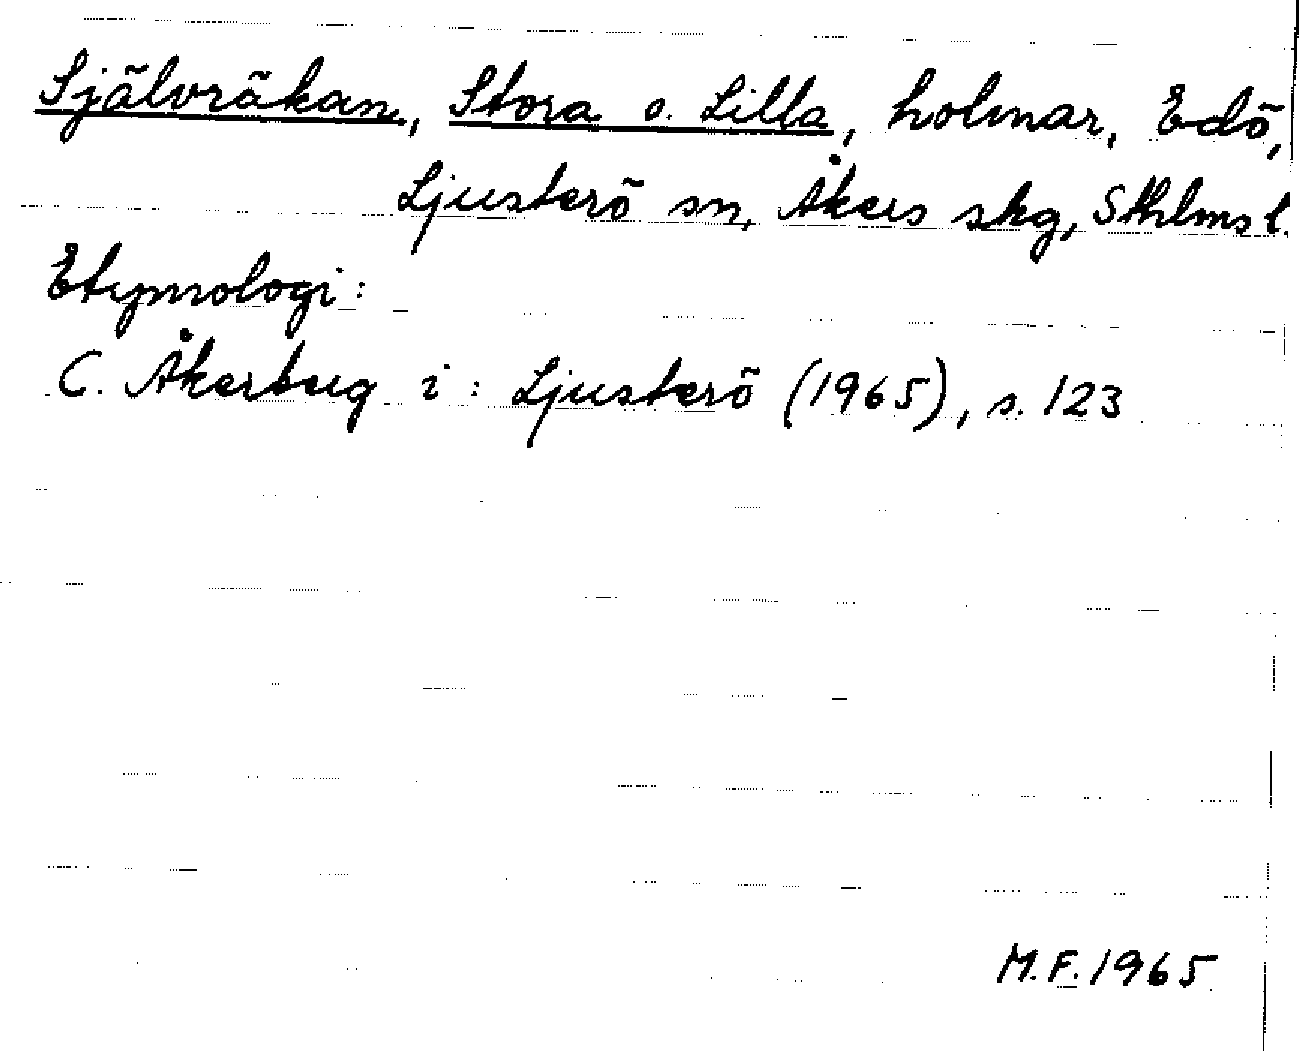 Självräkan, Stora o. Lilla, holmar, Edö,
Ljusterö sn, Åkers skg, Sthlms l.
Etymologi:
C. Åkerberg i: Ljusterö (1965), s. 123
M.F. 1965